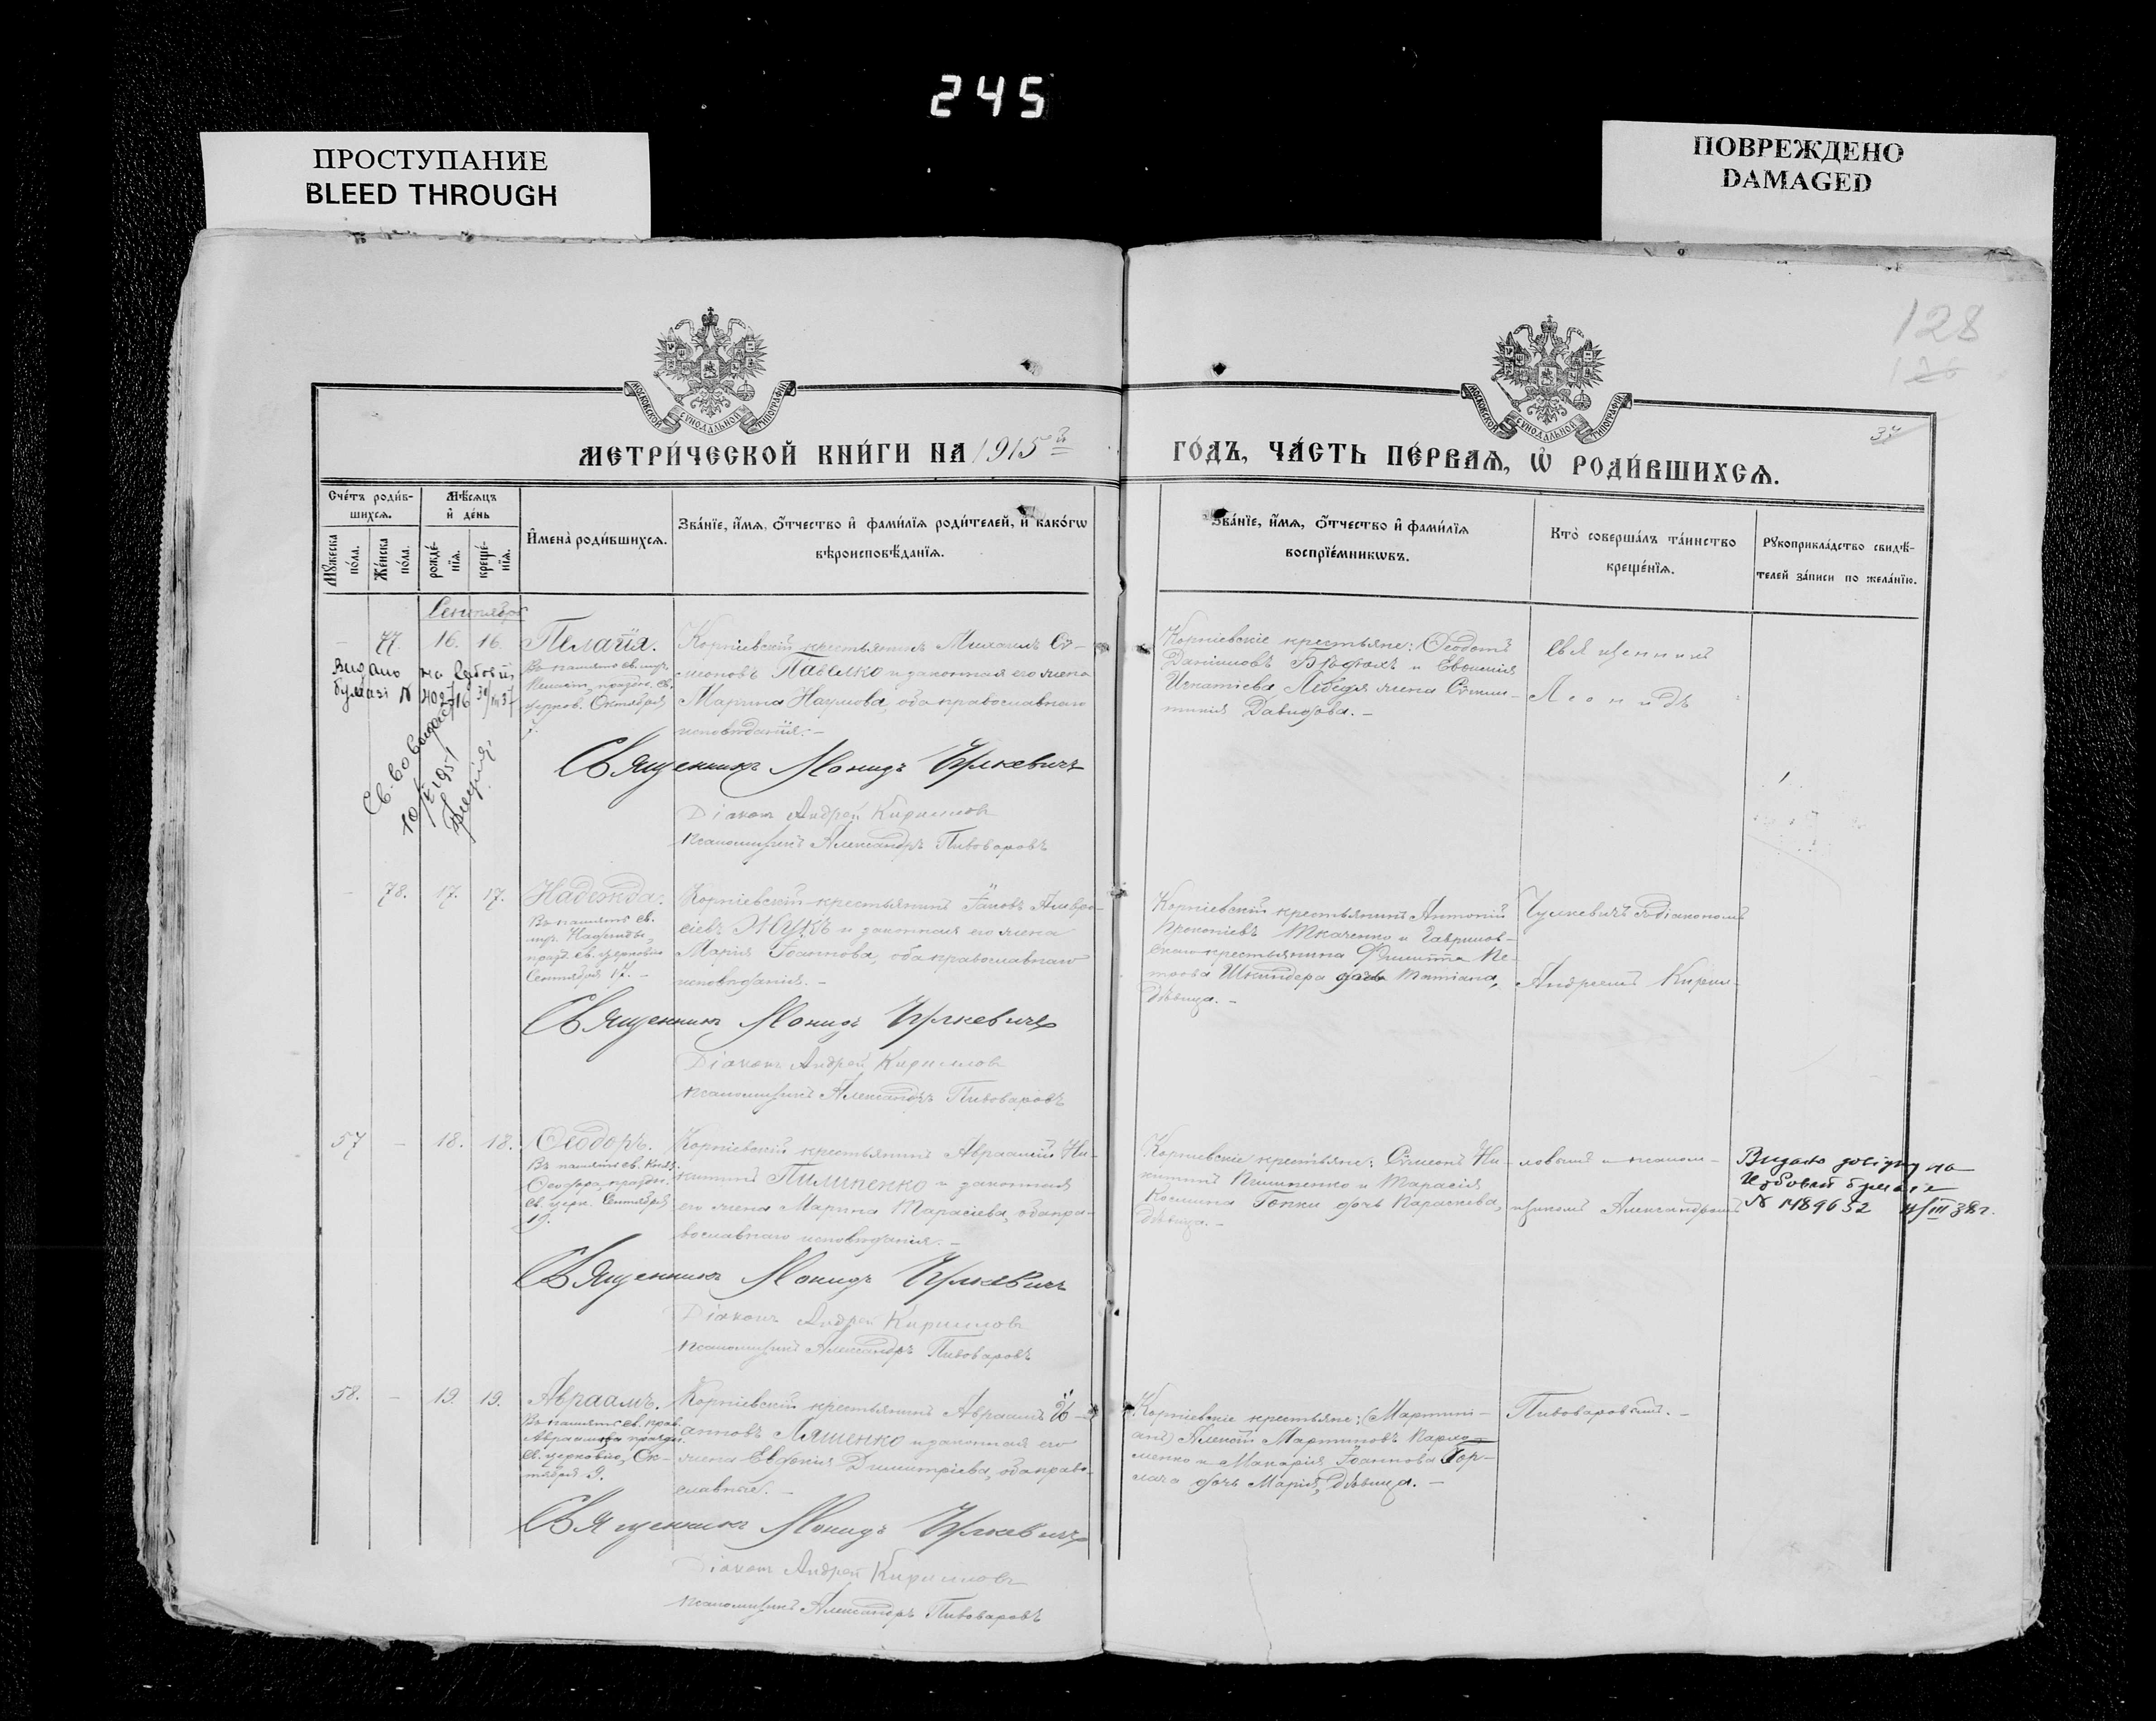 245
ПРОСТУПАНИЕ
BLEED THROUGH
ПОВРЕЖДЕНО
DAMAGED
128
126
37
МОСКОВСКОЙ СѴНОДАЛЬНОЙ ТИПОГРАФІИ
МОСКОВСКОЙ СѴНОДАЛЬНОЙ ТИПОГРАФІИ
МЕТРИ́ЧЕСКОЙ КНИ́ГИ НА 1915й
ГО́ДЪ, ЧА́СТЬ ПЕ́РВАѦ, Ѡ҆ РОДИ́ВШИХСѦ.
Сче́тъ роди́в-
шихсѧ.
Мѣ́сѧцъ
и҆ де́нь
Мꙋ́жеска по́ла.
Же́нска по́ла.
рожде́-
нїѧ.
креще́-
нїѧ.
И҆мена̀ роди́вшихсѧ.
Зва́нїе, и҆́мѧ, ѻ҆́тчество и҆ фами́лїѧ роди́телей, и҆ како́гѡ
вѣроисповѣ́данїѧ.
Зва́нїе, и҆́мѧ, ѻ҆́тчество и҆ фами́лїѧ
воспрїе́мникѡвъ.
Кто̀ соверша́лъ та́инство
креще́нїѧ.
Рꙋкоприкла́дство свидѣ́-
телей за́писи по жела́нїю.
Сентябрь
77. 16. 16. Пелагія.
Въ память св. муч.
Октября
Видано на
бумазі №
10/X 1951
Корніевскій крестьянинъ Михаилъ Сѵ-
меоновъ Павелко и законная его жена
Марина Наумова, оба православнаго
исповѣданія. –
Священникъ Леонидъ Чулкевичъ
Діаконъ Андрей Кириловъ
Псаломщикъ Александръ Пивоваровъ
Корніевскіе крестьяне: Ѳеодотъ
Даніиловъ и Евѳимія
Игнатіева, Лебедя жена
Давидова. –
Священникъ
Леонидъ
78. 17. 17. Надежда.
Въ память св.
муч. Надежды,
празд. св. церковію
Сентября 17. –
Корніевскій крестьянинъ Іаковъ Амвро-
сіевъ Жукъ и законная его жена
Марія Іоаннова, оба православнаго
исповѣданія. –
Священникъ Леонидъ Чулкевичъ
Діаконъ Андрей Кириловъ
Псаломщикъ Александръ Пивоваровъ
Корніевскій крестьянинъ Антоній
Прокопіевъ Ткаченко и Гавриловскаго
крестьянина Филиппа Пе-
трова Шкиндера дочь Татіана,
дѣвица. –
Чулкевичъ съ діакономъ
Андреемъ Кирил-
57 – 18. 18. Ѳеодоръ.
Въ память св. Князя
Ѳеодора, праздн.
св. церк. Сентября
19.
Корніевскій крестьянинъ Авраамій Ни-
китинъ Пилипенко и законная
его жена Марина Тарасіева, оба пра-
вославнаго исповѣданія. –
Священникъ Леонидъ Чулкевичъ
Діаконъ Андрей Кириловъ
Псаломщикъ Александръ Пивоваровъ
Корніевскіе крестьяне: Сѵмеонъ Ни-
китинъ Пилипенко и Тарасія
Космина Гопки дочь Параскева,
дѣвица. –
ловымъ и псалом-
щикомъ Александромъ
Видано довідку на
гербовой бумазі
№ 1489652 4/III 38 г.
58. – 19. 19. Авраамъ.
Въ память св. прав.
Авраама праздн.
св. церковію, Ок-
тября 9.
Корніевскій крестьянинъ Авраамъ Іо-
анновъ Ляшенко и законная его
жена Евдокія Димитріева, оба право-
славные. –
Священникъ Леонидъ Чулкевичъ
Діаконъ Андрей Кириловъ
Псаломщикъ Александръ Пивоваровъ
Корніевскіе крестьяне: (Мартини-
анъ) Алексій Мартиновъ Пархо-
менко и Макарія Іоаннова Гор-
лача дочь Марія, дѣвица. –
Пивоваровымъ. –